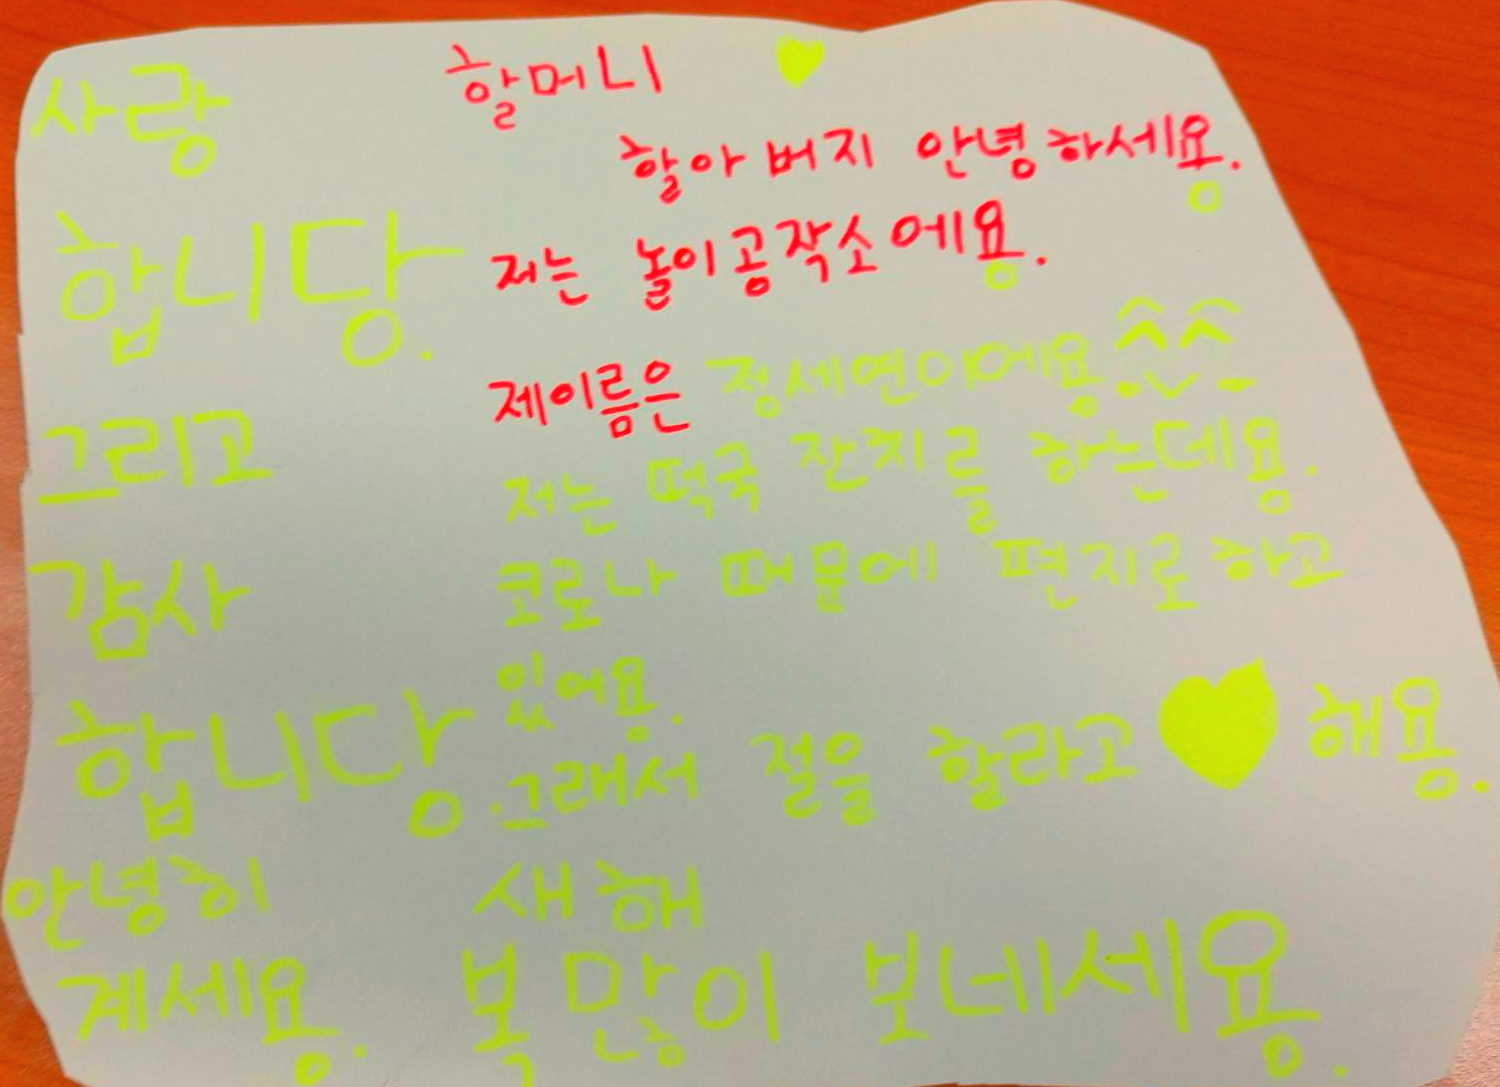 할머니
할아버지 안녕하세용.
저는 놀이공작소에용.
제이름은 정세연이에용
저는 떡국 잔치를 하는데용.
코로나 때문에 편지로하고
있어용.
그래서 절을 할라고 해용.
새해
복 많이 보네세용.
사랑
합니당.
그리고
감사
합니당.
안녕히
계세용.